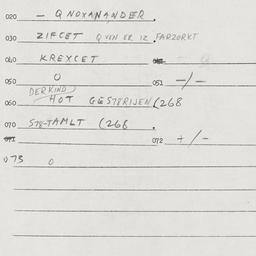 020 — Q NOYANANDER.
030 ZIFCET Q VEN ER IZ FARZORKT
040 KREXCET
050 O 051 -/-
DERKIND
060 HOT GESTBRIJEN (268
070 STB-TAMLT (268.
071 072 +/-
073 O